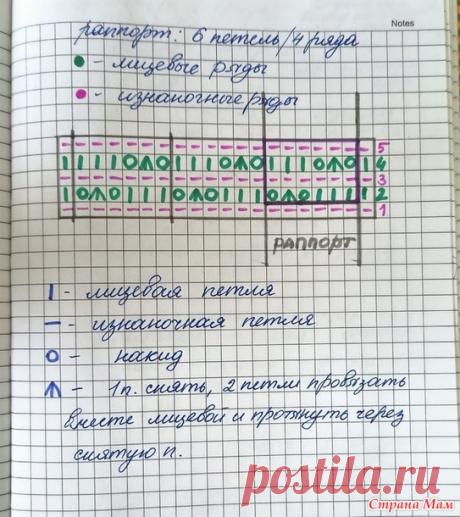 Notes
раппорт: 6 петель/4 ряда
- лицевые ряды
- изнаночные ряды
5
4
3
2
1
раппорт
| - лицевая петля
— - изнаночная петля
O - накид
- 1п. снять, 2 петли провязать
вместе лицевой и протянуть через
снятую п.
postila.ru
Страна Мам